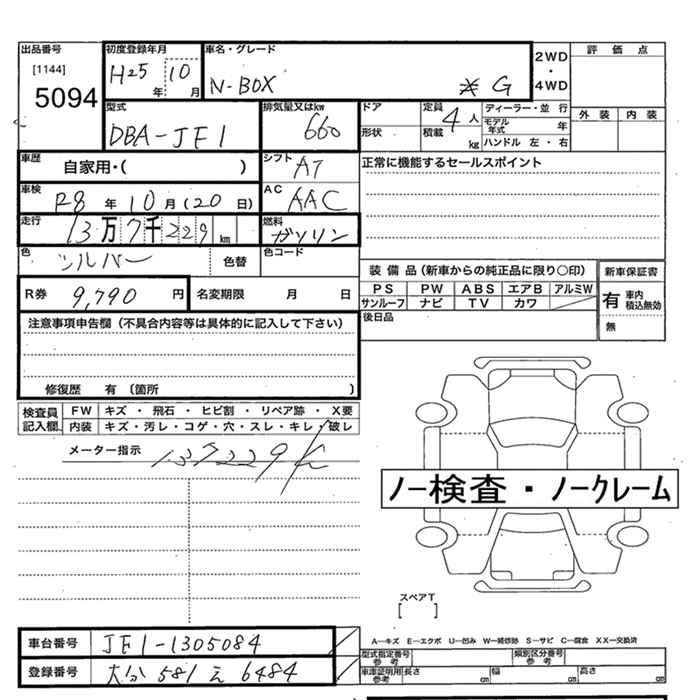 出品番号
[1144]
5094
初度登録年月
H25 年 10 月
車名・グレード
N-BOX ※ G
2WD
・
4WD
評価点
外装 内装
型式
DBA-JF1
排気量又はkw
660
ドア
形状
定員
4人
積載 kg
ディーラー・並行
モデル年式 年
ハンドル 左・右
車歴
自家用・( )
シフト
AT
正常に機能するセールスポイント
車検
R8 年 10 月 (20 日)
AC
AAC
走行
13万7千229 km
燃料
ガソリン
色
シルバー
色替
色コード
装備品(新車からの純正品に限り○印)
PS PW ABS エアB アルミW
サンルーフ ナビ TV カワ
新車保証書
有 車内積込無効
無
R券 9,790 円
名変期限 月 日
後日品
注意事項申告欄(不具合内容等は具体的に記入して下さい)
修復歴 有 (箇所 )
検査員記入欄
FW キズ・飛石・ヒビ割・リペア跡・X要
内装 キズ・汚レ・コゲ・穴・スレ・キレ・破レ
メーター指示
137229K
ノー検査・ノークレーム
スペアT
[ ]
A―キズ E―エクボ U―凹み W―補修跡 S―サビ C―腐食 XX―交換済
車台番号 JF1-1305084
登録番号 大分 581 え 6484
型式指定番号 参考
類別区分番号 参考
車庫証明用 参考
長さ cm 幅 cm 高さ cm